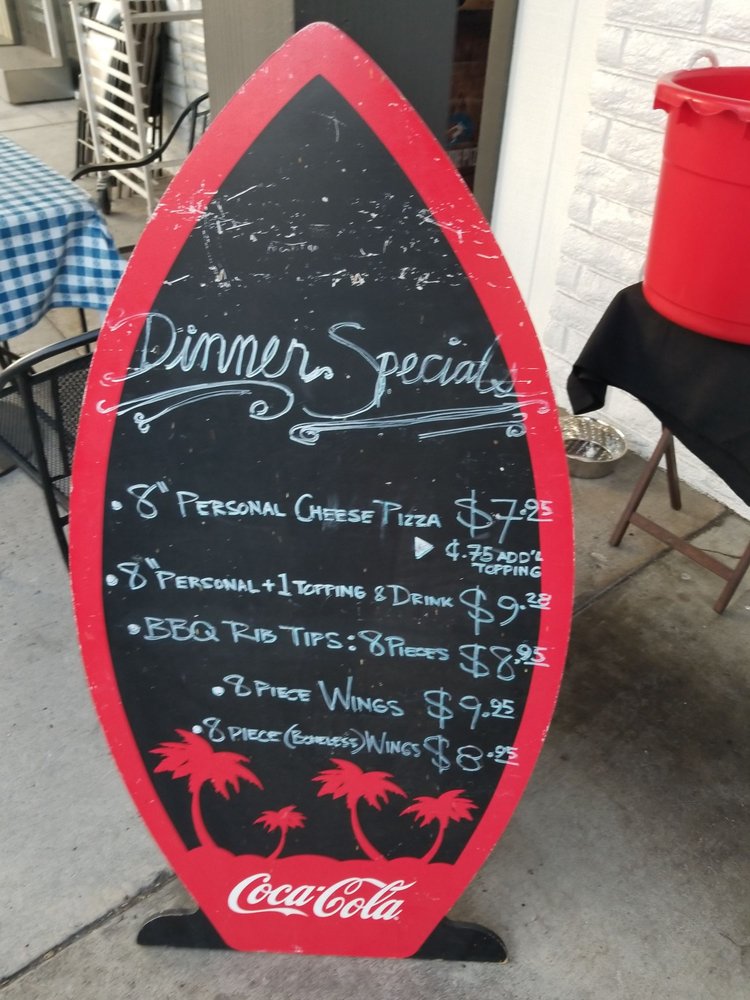 Dinner Specials
• 8" PERSONAL CHEESE PIZZA $7.95
¢.75 ADD'L
TOPPING
• 8" PERSONAL + 1 TOPPING & DRINK $9.28
• BBQ RIB TIPS: 8 PIECES $8.95
• 8 PIECE WINGS $9.95
• 8 PIECE (BONELESS) WINGS $8.95
Coca-Cola